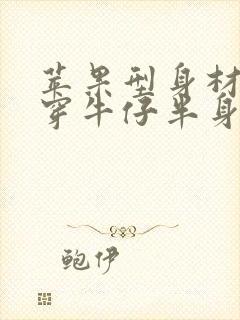 苹果型身材
穿牛仔半身
鲍伊